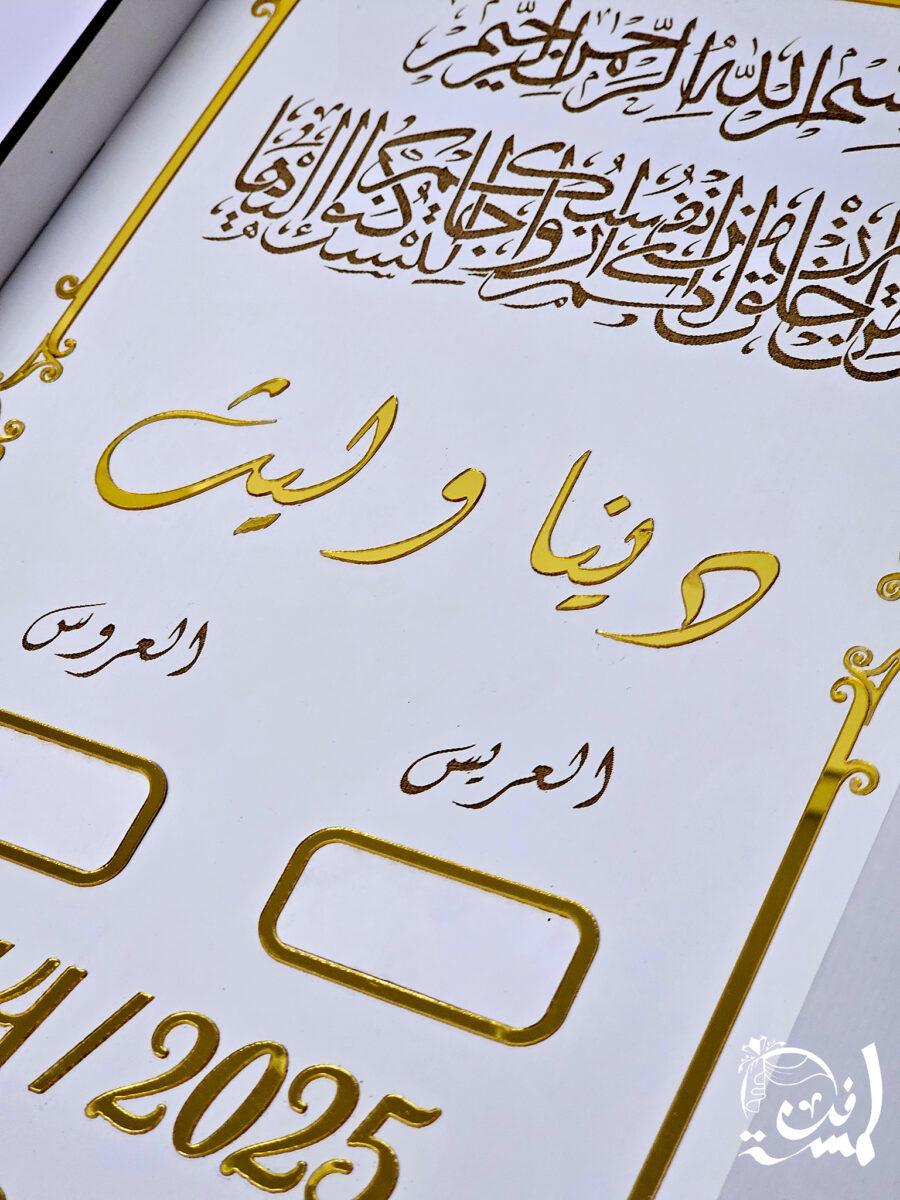 بسم الله الرحمن الرحيم
خلق لكم من أنفسكم أزواجا لتسكنوا إليها
دينا و ليث
العروس
العريس
4 / 2025
لمسة فن